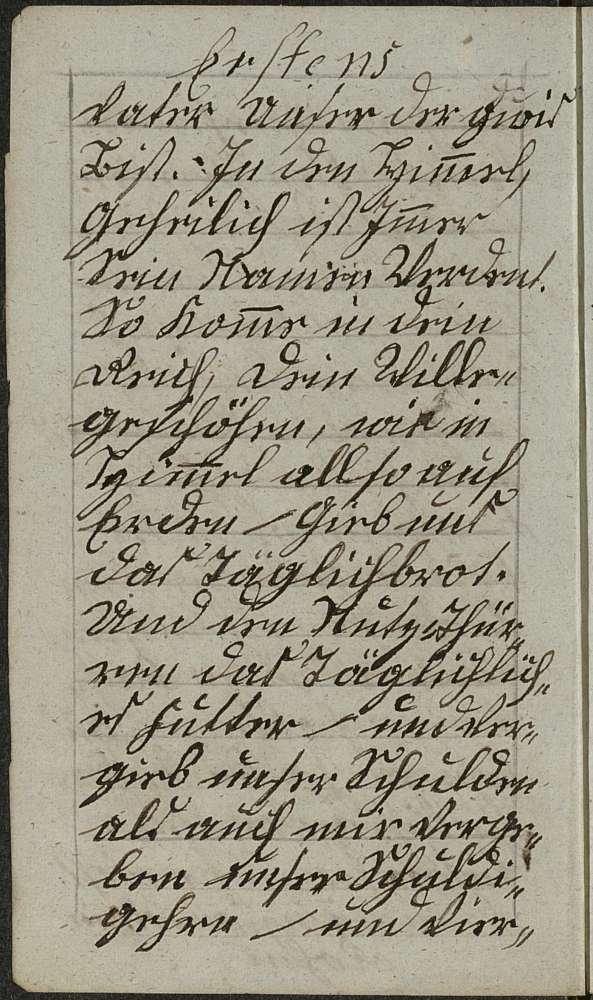 Erstens
Vater Unser der gwis
Bist. In den Himmel,
geheilich ist Imer
Dein Namen Werdent.
So Komme in dein
Reich, Dein Wille-
geschöhen, wie in
Himmel allso auf
Erden / Gieb uns
das Täglichbrot.
Und den Nutz Thür„
ren das Täglichlich„
es Futter / und ver„
gieb unser Schulden
als auch mir verge„
ben unser Schuldi„
gehre / und Vier„